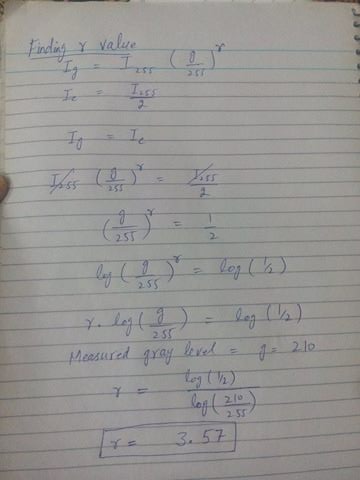 Finding r value
I_g = I_255 (g/255)^r
I_c = I_255/2
I_g = I_c
I_255 (g/255)^r = I_255/2
(g/255)^r = 1/2
log (g/255)^r = log (1/2)
r . log (g/255) = log (1/2)
Measured gray level = g = 210
r = log (1/2) / log (210/255)
r = 3.57